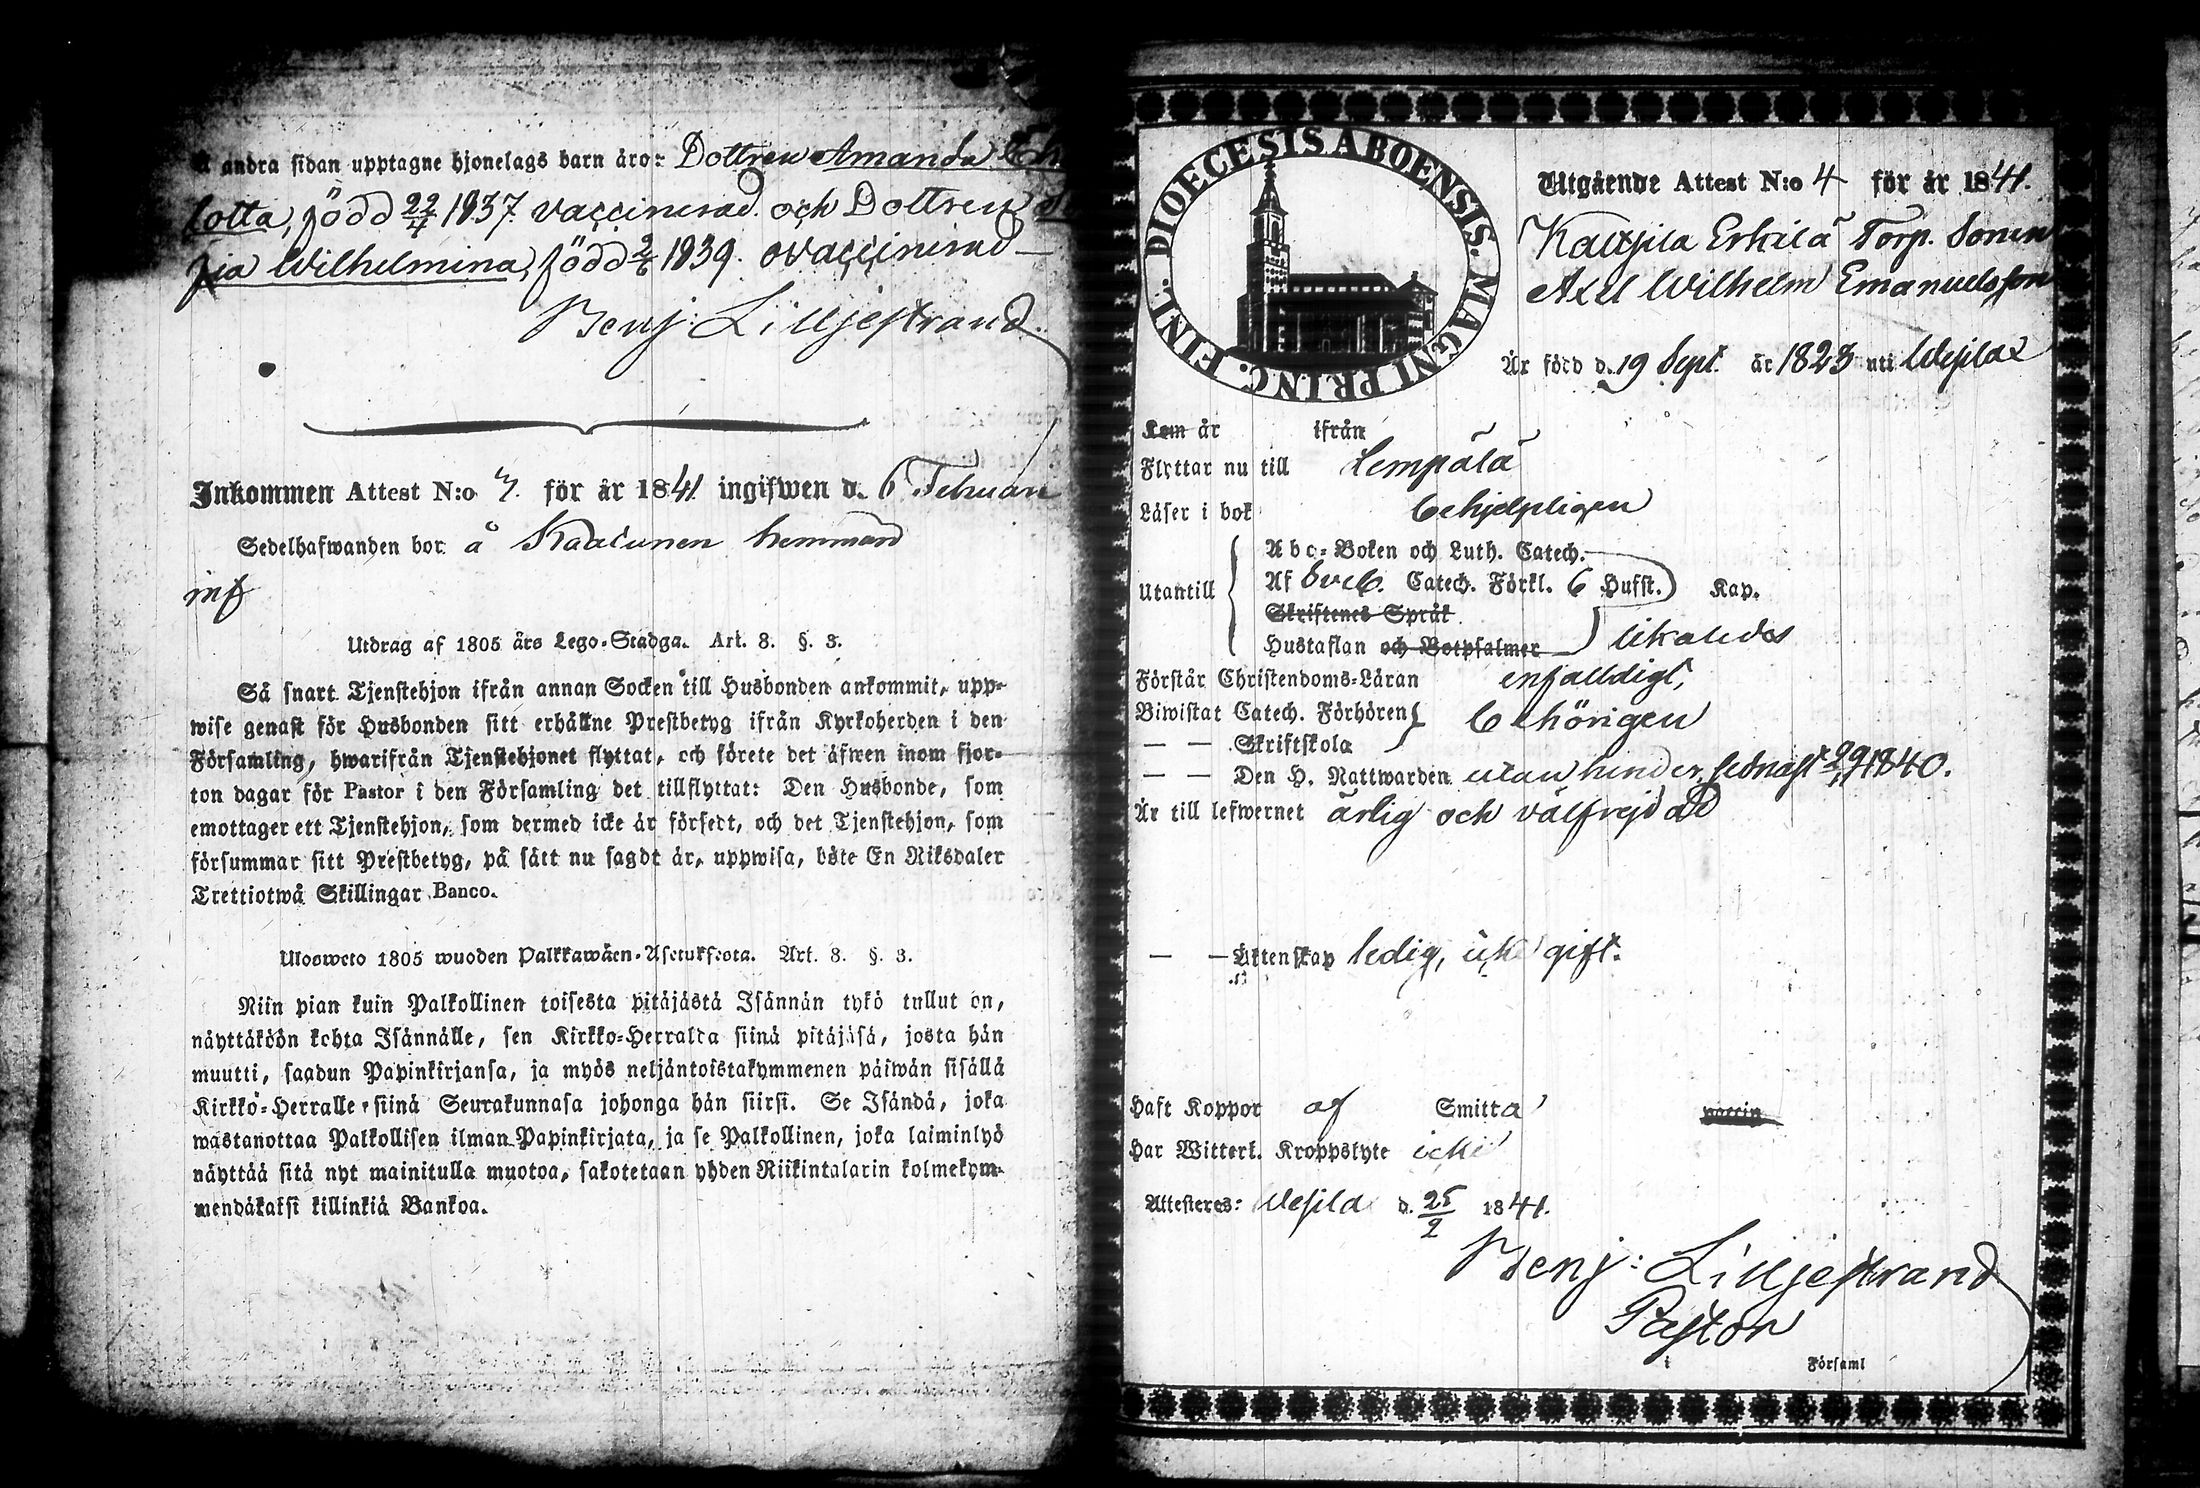 å andra sidan upptagne hjonelags barn äro: Dottren Amanda
lotta, född 22/4 1837. vaccinerad. och Dottren
fia Wilhelmina, född 2/6 1839. ovaccinerad
Benj: Lilljestrand.
Inkommen Attest N:o 7. för år 1841 ingifwen d. 6 Februari
Sedelhafwanden bor å hemman
inf
Utdrag af 1805 års Lego-Stadga. Art. 8. §. 3.
Så snart Tjenstehjon ifrån annan Socken till Husbonden ankommit, upp-
wise genast för Husbonden sitt erhållne Prestbetyg ifrån Kyrkoherden i den
Församling, hwarifrån Tjenstehjonet flyttat, och förete det äfwen inom fjor-
ton dagar för Pastor i den Församling det tillflyttat: Den Husbonde, som
emottager ett Tjenstehjon, som dermed icke är försedt, och det Tjenstehjon, som
försummar sitt Prestbetyg, på sätt nu sagdt är, uppwisa, böte En Riksdaler
Trettiotwå Skillingar Banco.
Ulosweto 1805 wuoden Palkkawäen-Asetuksesta. Art. 8. §. 3.
Niin pian kuin Palkollinen toisesta pitäjästä Isännän tykö tullut on,
näyttäköön kohta Isännälle, sen Kirkko-Herralda siinä pitäjäsä, josta hän
muutti, saadun Papinkirjansa, ja myös neljäntoistakymmenen päiwän sisällä
Kirkko-Herralle siinä Seurakunnasa johonga hän siirsi. Se Isändä, joka
wastanottaa Palkollisen ilman Papinkirjata, ja se Palkollinen, joka laiminlyö
näyttää sitä nyt mainitulla muotoa, sakotetaan yhden Riikintalarin kolmekym-
mendäkaksi killinkiä Bankoa.
DIOECESIS ABOENSIS. MAGNI PRINC. FINL.
Utgående Attest N:o 4 för år 1841.
Erkilä Torp. Sonen
Axel Wilhelm Emanuelsson
Är född d. 19 Sept. år 1823 uti Wesilax
Kom år ifrån
Flyttar nu till Lempälä
Läser i bok behjelpligen
Utantill
Abc-Boken och Luth. Catech.
Af Sveb. Catech. Förkl. 6 Hufst. Kap.
Skriftenes Språk
Hustaflan och Botpsalmer likaledes
Förstår Christendoms-Läran enfalldigt,
Biwistat Catech. Förhören behörigen
— — Skriftskola
— — Den H. Nattwarden utan hinder, sednast 1840.
Är till lefwernet ärlig och välfrejdad
— — Äktenskap ledig, icke gift.
Haft Koppor af Smitta vaccin
Har Witterl. Kroppslyte icke
Attesteres: Wesila d. 25/2 1841.
Benj: Lilljestrand
Pastor
i Församl